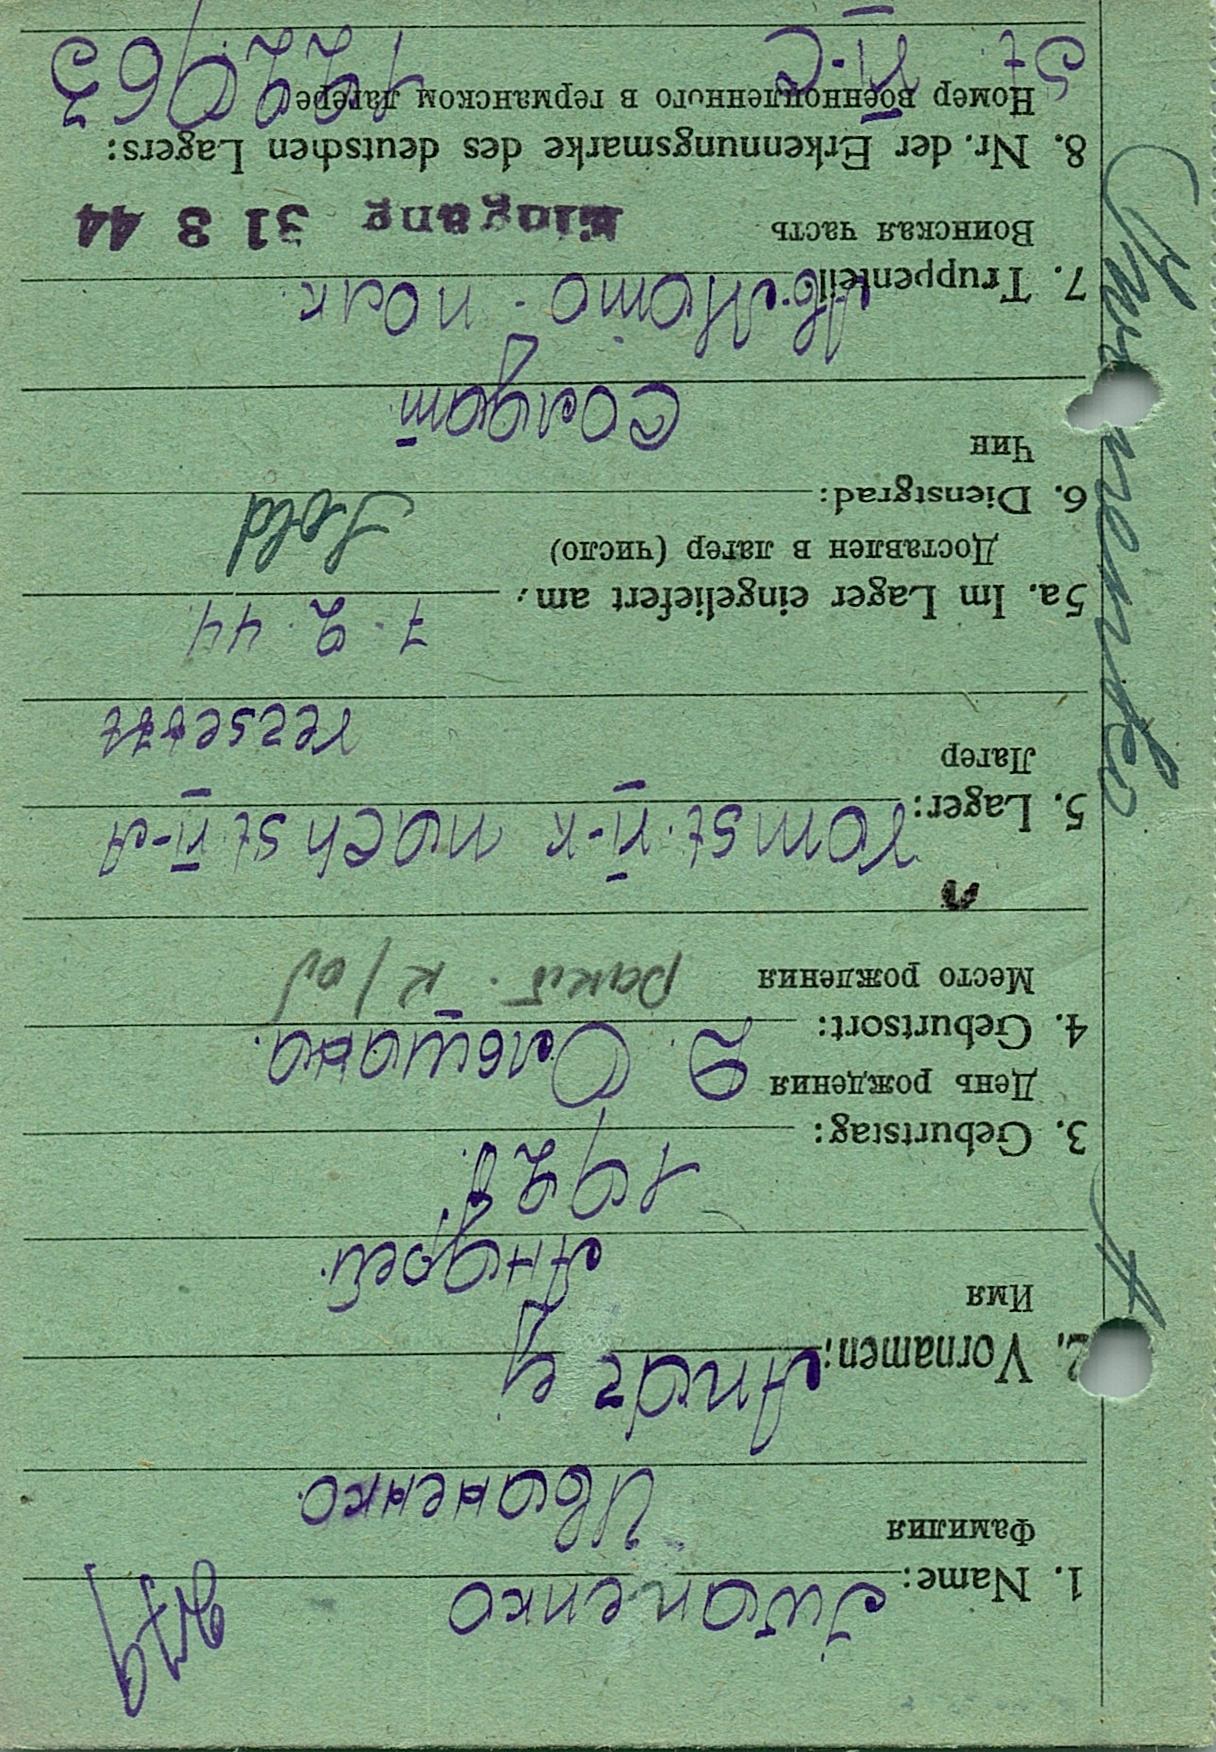 1. Name: Iwanenko
Фамилия
Иваненко.
2. Vornamen: Andrey
Имя
Андрей.
3. Geburtstag:
День рождения
4. Geburtsort: д. Ольшана.
Место рождения
5. Lager: vom St. II-K nach St. II-A
Лагер
versetzt
7.2.44
5a. Im Lager eingeliefert am:
Доставлен в лагер (число)
Sold
6. Dienstgrad:
Чин
солдат
7. Truppenteil Авт.Мото-полк.
Воинская часть
Eingang 31 3 44
8. Nr. der Erkennungsmarke des deutschen Lagers:
Номер военнопленного в германском лагере
122963
St. VI-C